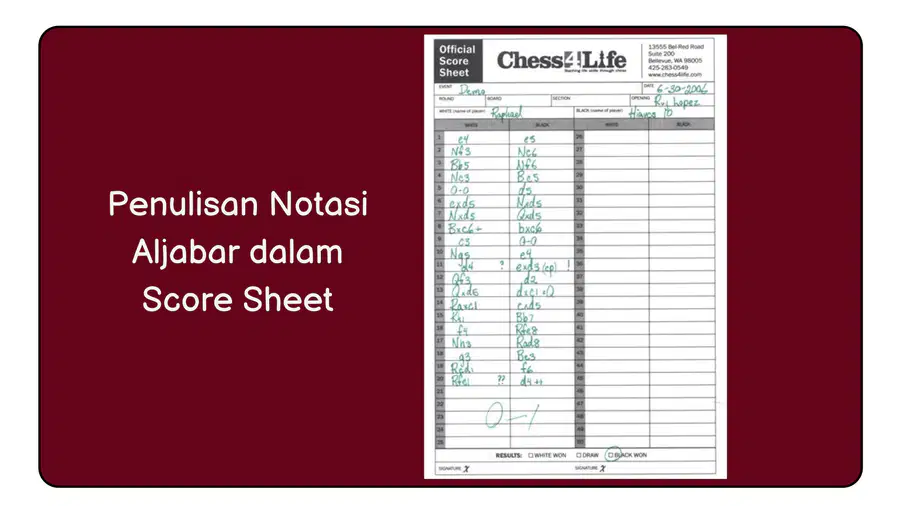 Penulisan Notasi
Aljabar dalam
Score Sheet
Official
Score
Sheet
Chess4Life
Teaching life skills through chess
13555 Bel-Red Road
Suite 200
Bellevue, WA 98005
425-283-0549
www.chess4life.com
EVENT Demo
DATE 6-30-2006
ROUND BOARD SECTION OPENING Ruy Lopez
WHITE (name of player) Raphael BLACK (name of player)
WHITE BLACK WHITE BLACK
1 e4 e5 26
2 Nf3 Nc6 27
3 Bb5 Nf6 28
4 Nc3 Bc5 29
5 0-0 d5 30
6 exd5 Nxd5 31
7 Nxd5 Qxd5 32
8 Bxc6+ bxc6 33
9 c3 0-0 34
10 Ng5 e4 35
11 d4 ? exd3 (ep) ! 36
12 Qf3 d2 37
13 Qxd5 dxc1=Q 38
14 Raxc1 cxd5 39
15 Bb7 40
16 f4 Rfe8 41
17 Nh3 Rad8 42
18 g3 Be3 43
19 f6 44
20 Rfe1 ?? d4++ 45
21 46
22 47
23 48
24 49
25 50
0-1
RESULTS: WHITE WON DRAW BLACK WON
SIGNATURE X SIGNATURE X